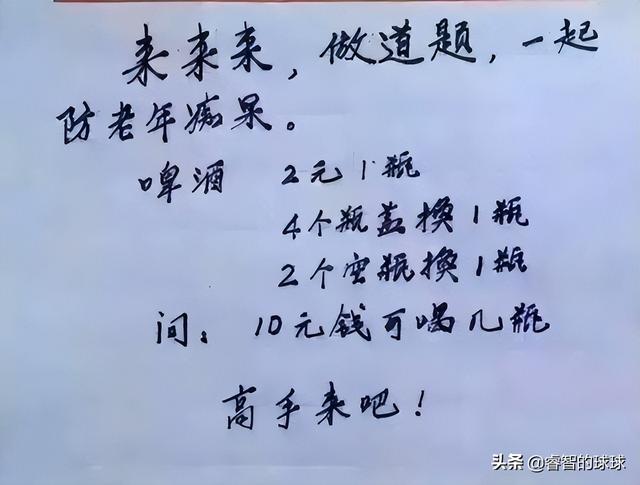 来来来，做道题，一起
防老年痴呆。
啤酒 2元1瓶
4个瓶盖换1瓶
2个空瓶换1瓶
问：10元钱可喝几瓶
高手来吧！
头条 @睿智的球球